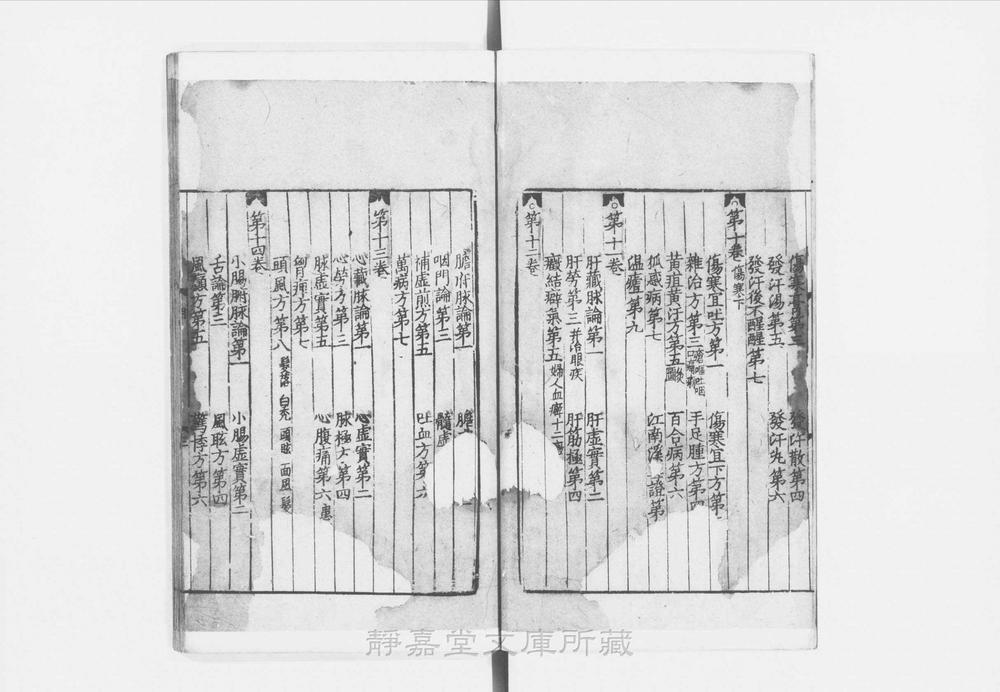 傷寒膏第三 發汗散第四
發汗湯第五 發汗丸第六
發汗後不醒醒第七
第十卷 傷寒下
傷寒宜吐方第一 傷寒宜下方第
雜治方第三 手足腫方第四
黃疸黃汗方第五 百合病第六
狐惑病第七 江南溪 證第
温瘧第九
第十一卷
肝藏脉論第一 肝虛實第二
肝勞第三 并治眼疾 肝筋極第四
癥結癖氣第五 婦人血癖十二
第十二卷
膽府脉論第一 膽
咽門論第三 髓虛
補虛煎方第五 吐血方第六
萬病方第七
第十三卷
心藏脉論第一 心虛實第二
心勞方第三 脉極方第四
脉虛實第五 心腹痛第六
胷痹方第七
頭風方第八 髮落 白禿 頭眩 面風 髮
第十四卷
小腸腑脉論第一 小腸虛實第二
舌論第三 風眩方第四
風癲方第五 驚悸方第六
靜嘉堂文庫所藏